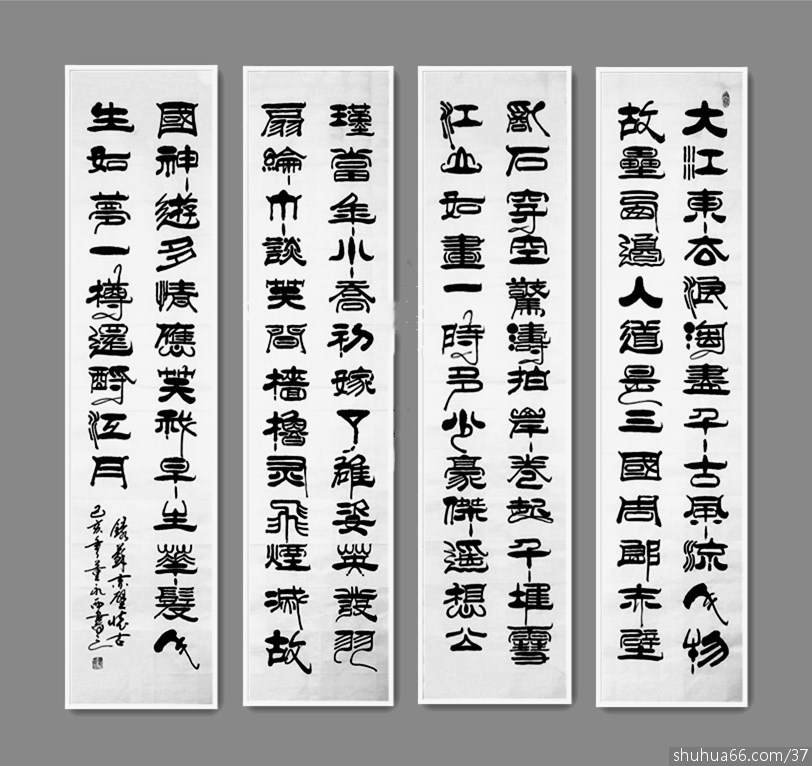 大江東去浪淘盡千古風流人物
故壘西邊人道是三國周郎赤壁
亂石穿空驚濤拍岸卷起千堆雪
江山如畫一時多少豪傑遥想公
瑾當年小喬初嫁了雄姿英發羽
扇綸巾談笑間檣櫓灰飛煙滅故
國神遊多情應笑我早生華髮人
生如夢一樽還酹江月
錄蘇赤壁懷古
己亥年董永西書之
shuhua66.com/37